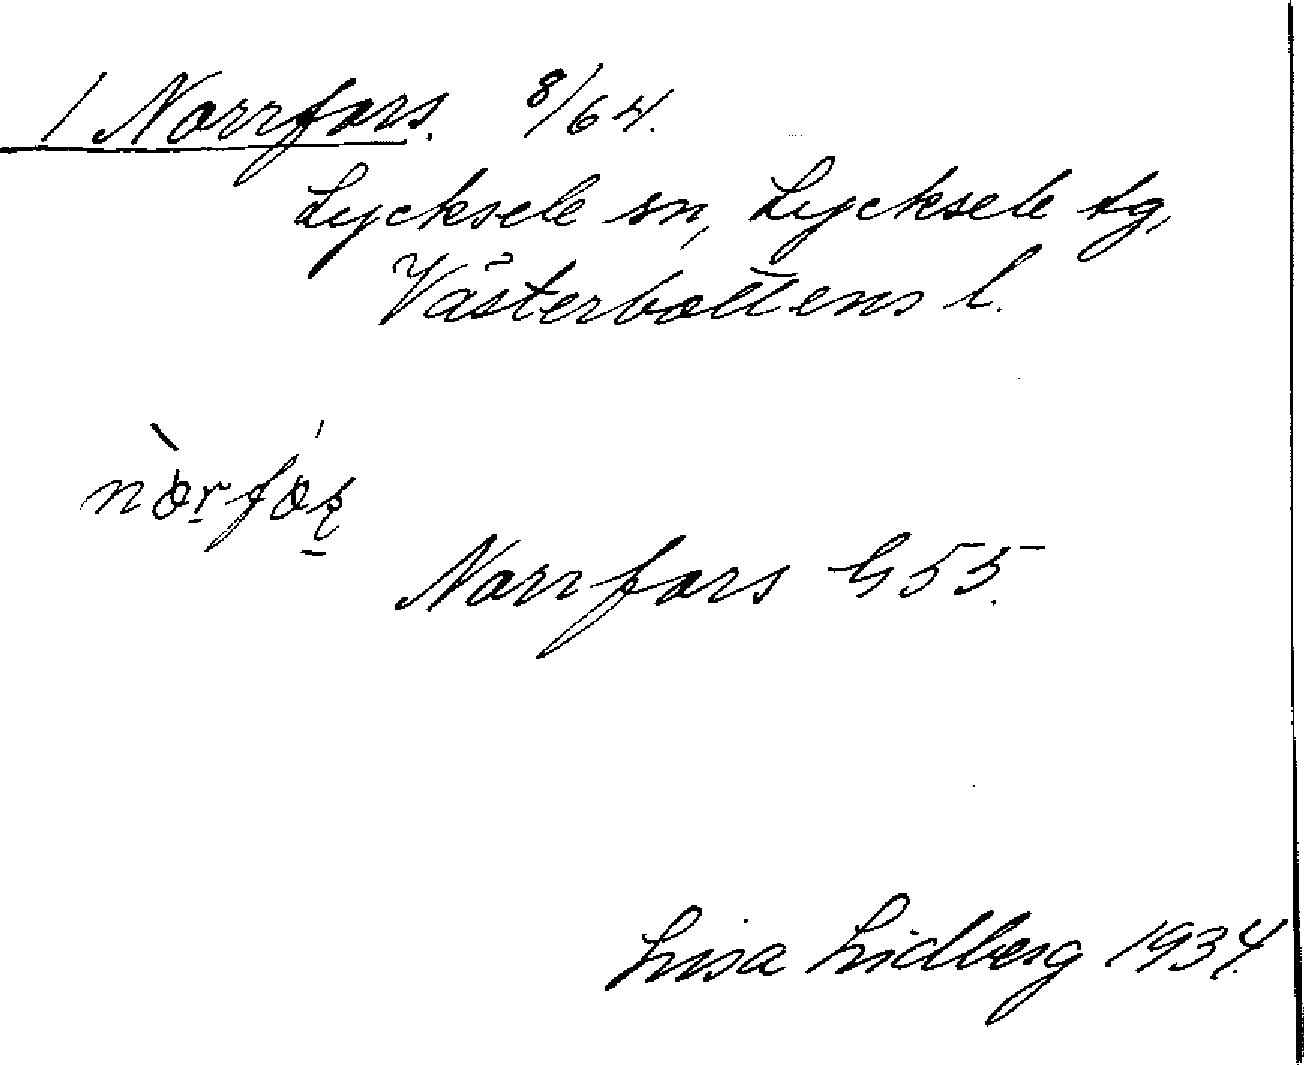 1 Norrfors. 8/64.
Lycksele sn, Lycksele tg,
Västerbottens l.
Norrfors G 55.
Lisa Lidberg 1934.